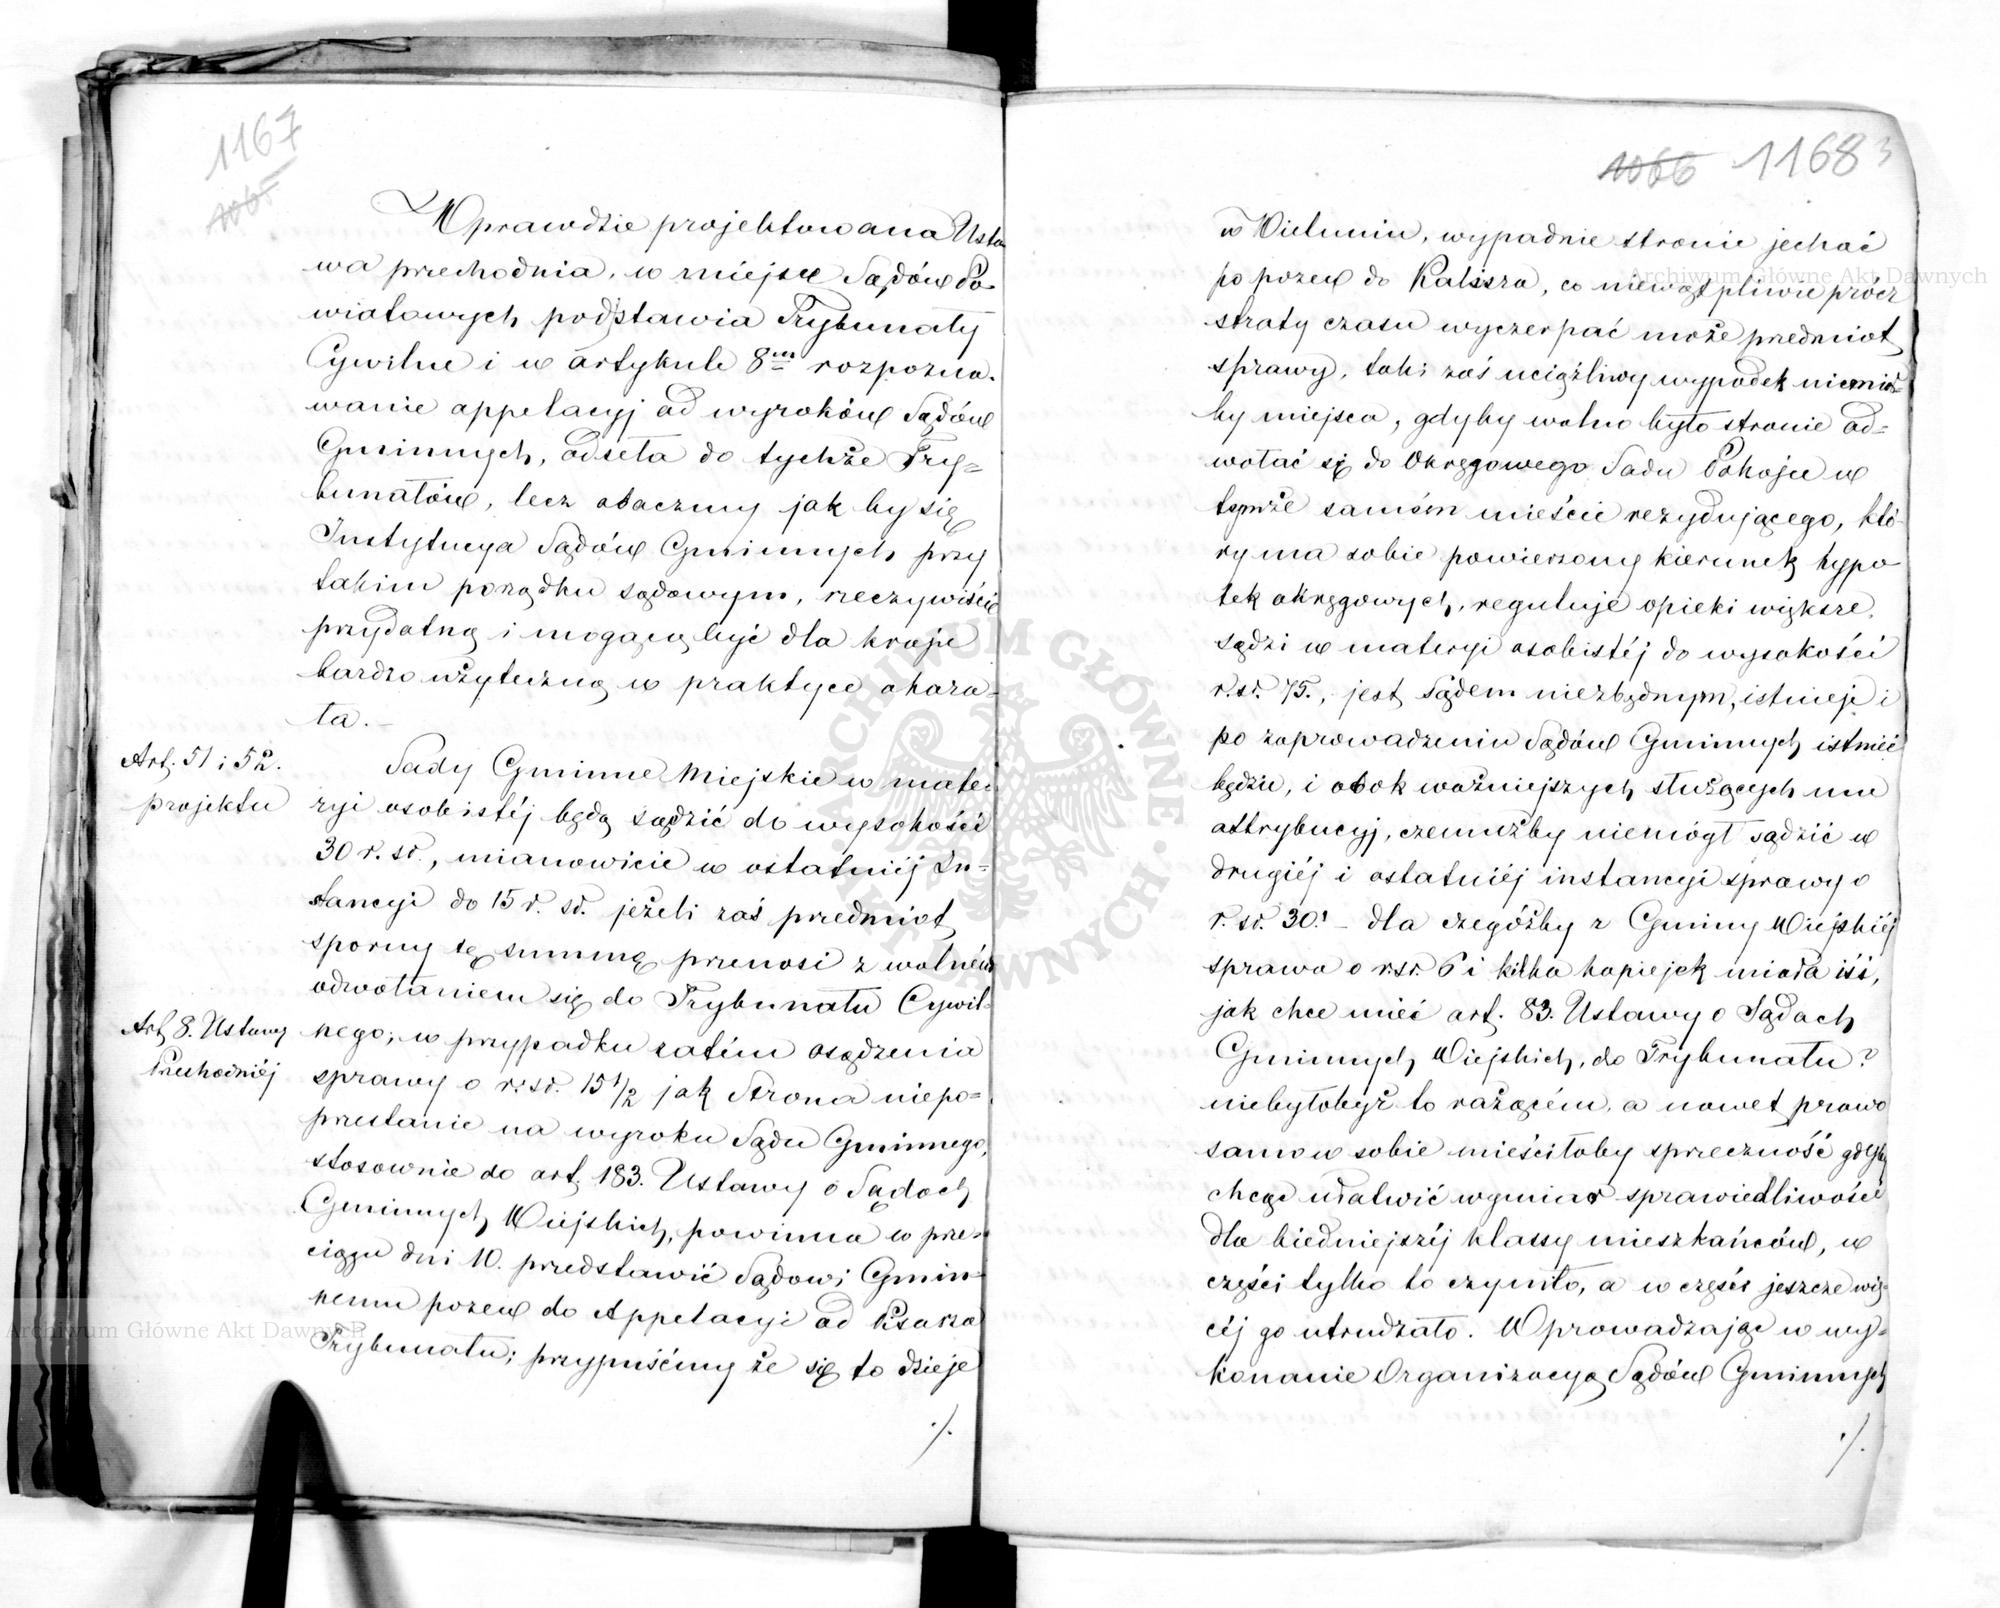 1167
1065
Wprawdzie projektowana Usta
wa przechodnia, w miejsce Sądów Po-
wiatowych podstawia Trybunały
Cywilne i w artykule 8m rozpozna-
wanie appelacyj od wyroków Sądów
Gminnych, odseła do tychże Try=
bunałów, lecz obaczmy jak by się
Instytucya Sądów Gminnych przy
takim porządku sądowym, rzeczywiście
przydatną i mogącą być dla kraju
bardzo użyteczną w praktyce okaza-
ła. –
Art. 51 i 52.
projektu
Sądy Gminne Miejskie w mate-
ryi osobistéj będą sądzić do wysokości
30 r. sr., mianowicie w ostatniéj In=
stancyi do 15 r. sr. jeżeli zaś przedmiot
sporny tę summę przenosi z wolném
odwołaniem się do Trybunału Cywil-
Art 8. Ustawy
Przechodniéj
nego; w przypadku zatém osądzenia
sprawy o r. sr. 15 1/2 jak Strona niepo=
przestanie na wyroku Sądu Gminnego,
stosownie do art. 183. Ustawy o Sądach
Gminnych Wiejskich, powinna w prze-
ciągu dni 10. przedstawić Sądowi Gmin-
nemu pozew do Appelacyi od Pisarza
Trybunału; przypuśćmy że się to dzieje
./.
1066 1168 3
w Wieluniu, wypadnie stronie jechać
po pozew do Kalisza, co niewątpliwie prócz
straty czasu wyczerpać może przedmiot
sprawy, taki zaś uciążliwy wypadek niemiał
by miejsca, gdyby wolno było stronie od=
wołać się do Okręgowego Sądu Pokoju w
tymże samém mieście rezydującego, któ-
ry ma sobie powierzony kierunek hypo
tek okręgowych, reguluje opieki większe,
sądzi w materyi osobistéj do wysokości
r. sr. 75., jest Sądem niezbędnym, istnieje i
po zaprowadzeniu Sądów Gminnych istnieć
będzie, i obok ważniejszych służących mu
attrybucyj, czemużby niemógł sądzić w
drugiéj i ostatniéj instancyi sprawy o
r. sr. 30? – dla czegóżby z Gminy Wiejskiéj
sprawa o r. sr. 6 i kilka kopiejek miała iść,
jak chce mieć art. 83. Ustawy o Sądach
Gminnych Wiejskich, do Trybunału?
niebyłobyż to rażącém, a nawet prawo
samo w sobie mieściłoby sprzeczność gdyby
chcąc ułatwić wymiar sprawiedliwości
dla biedniejszéj klassy mieszkańców, w
części tylko to czyniło, a w części jeszcze wię-
céj go utrudzało. Wprowadzając w wy=
konanie Organizacyą Sądów Gminnych
./.
ARCHIWUM GŁÓWNE · AKT DAWNYCH ·
Archiwum Główne Akt Dawnych
Archiwum Główne Akt Dawnych